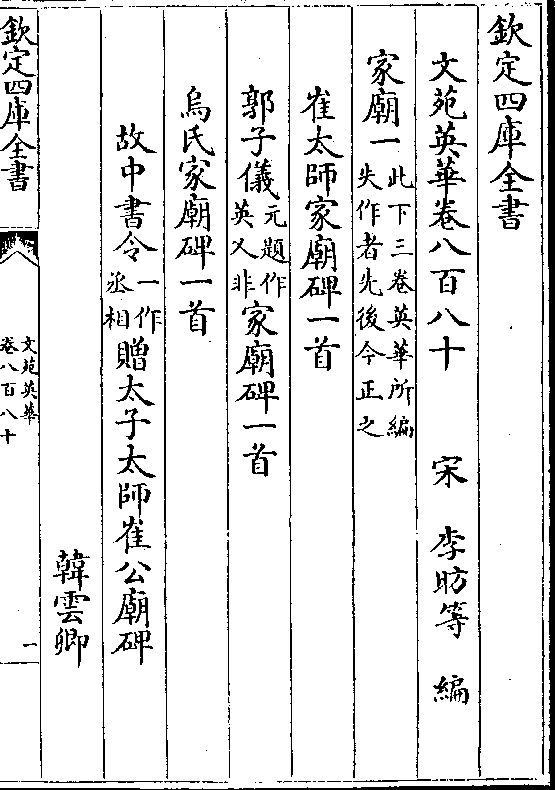 欽定四庫全書
文苑英華卷八百八十 宋 李昉等 編
家廟一此下三卷英華所編失作者先後今正之
崔太師家廟碑一首
郭子儀元題作英乂非家廟碑一首
烏氏家廟碑一首
故中書令一作丞相贈太子太師崔公廟碑
韓雲卿
欽定四庫全書
文苑英華
卷八百八十
一